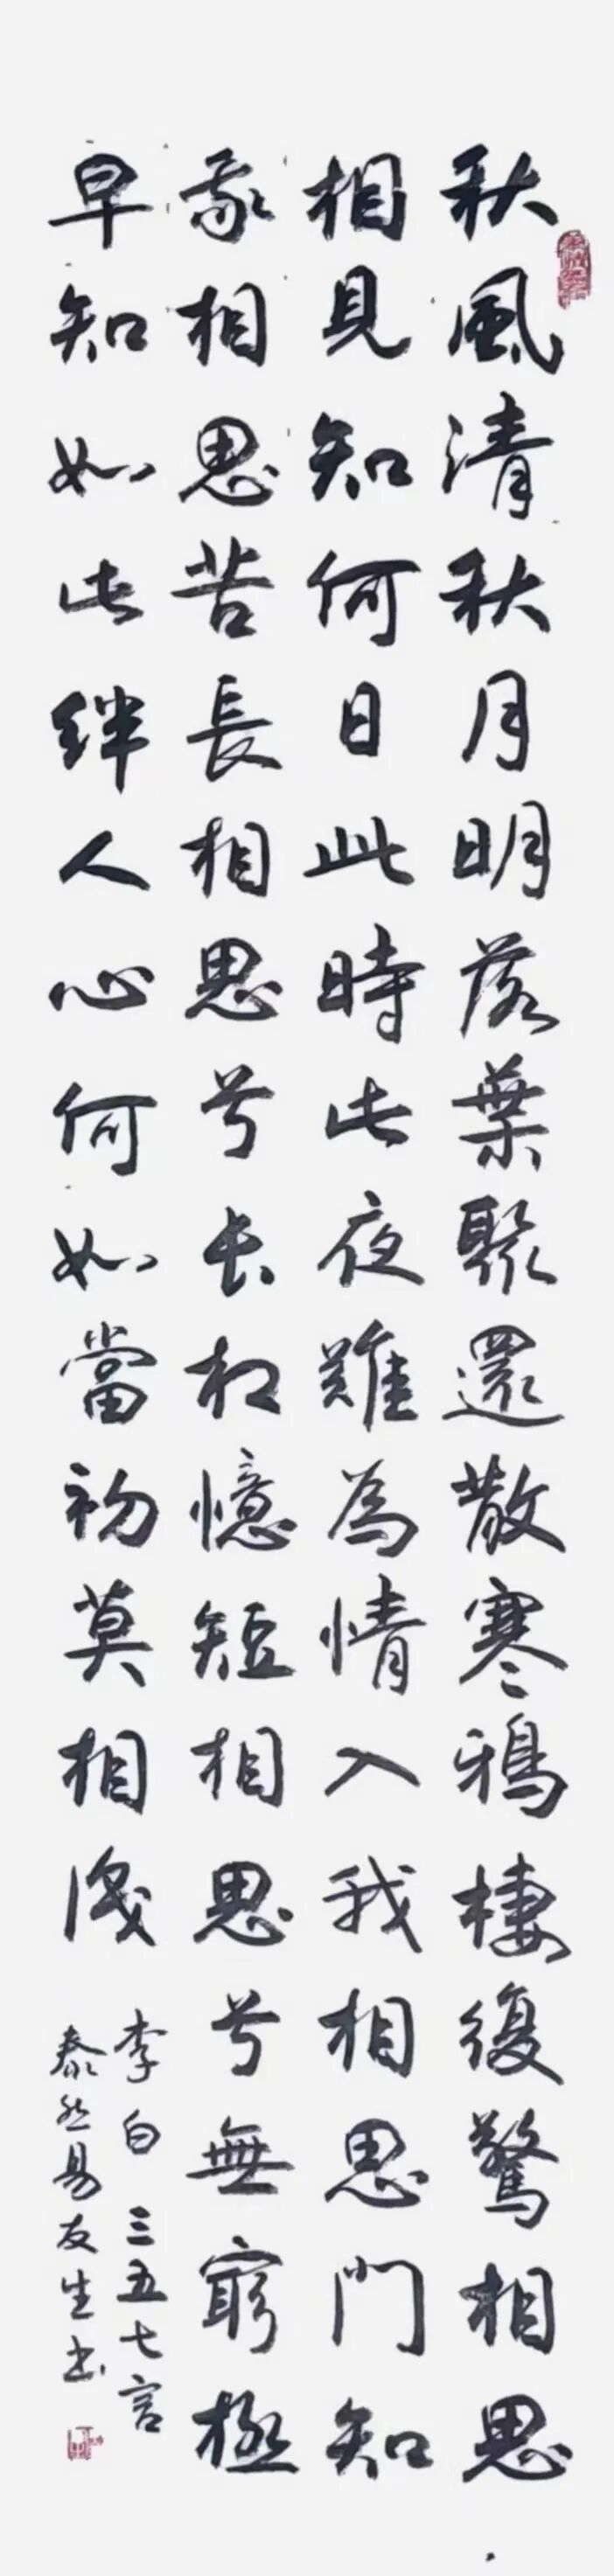 秋風清秋月明落葉聚還散寒鴉棲復驚相思
相見知何日此時此夜難為情入我相思門知
我相思苦長相思兮长相憶短相思兮無窮極
早知如此絆人心何如當初莫相識
李白 三五七言
泰然易友生书